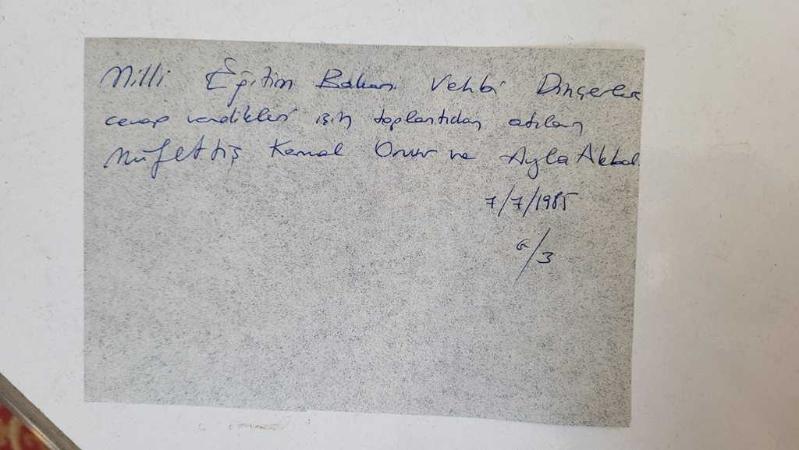 Milli Eğitim Bakanı Vehbi Dinçerler
cevap verdikleri için toplantıdan atılan
Müfettiş Kemal Onur ve Ayla Akbal
7/7/1985
G/3